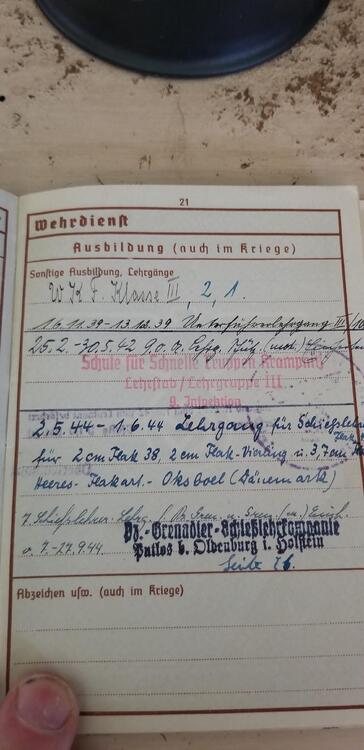 21
Wehrdienst
Ausbildung (auch im Kriege)
Sonstige Ausbildung, Lehrgänge
W K F. Klasse III, 2, 1.
16.11.39-13.12.39 Unterführerlehrgang
25.2.-30.5.42 9. O. A. Lehrg. (mot)
Schule für Schnelle Truppen Krampnitz
Lehrstab/Lehrgruppe III
9. Inspektion
2.5.44-1.6.44 Lehrgang für Schießlehrer
für 2 cm Flak 38, 2 cm Flak-Vierling u. 3,7 cm
Heeres-Flakart.- Oksboel (Dänemark)
7. Schießlehrer Lehrg. f.
v. 7.-27.9.44
Pz.-Grenadier-Schießlehrkompanie
Putlos b. Oldenburg i. Holstein
Seite 26.
Abzeichen usw. (auch im Kriege)